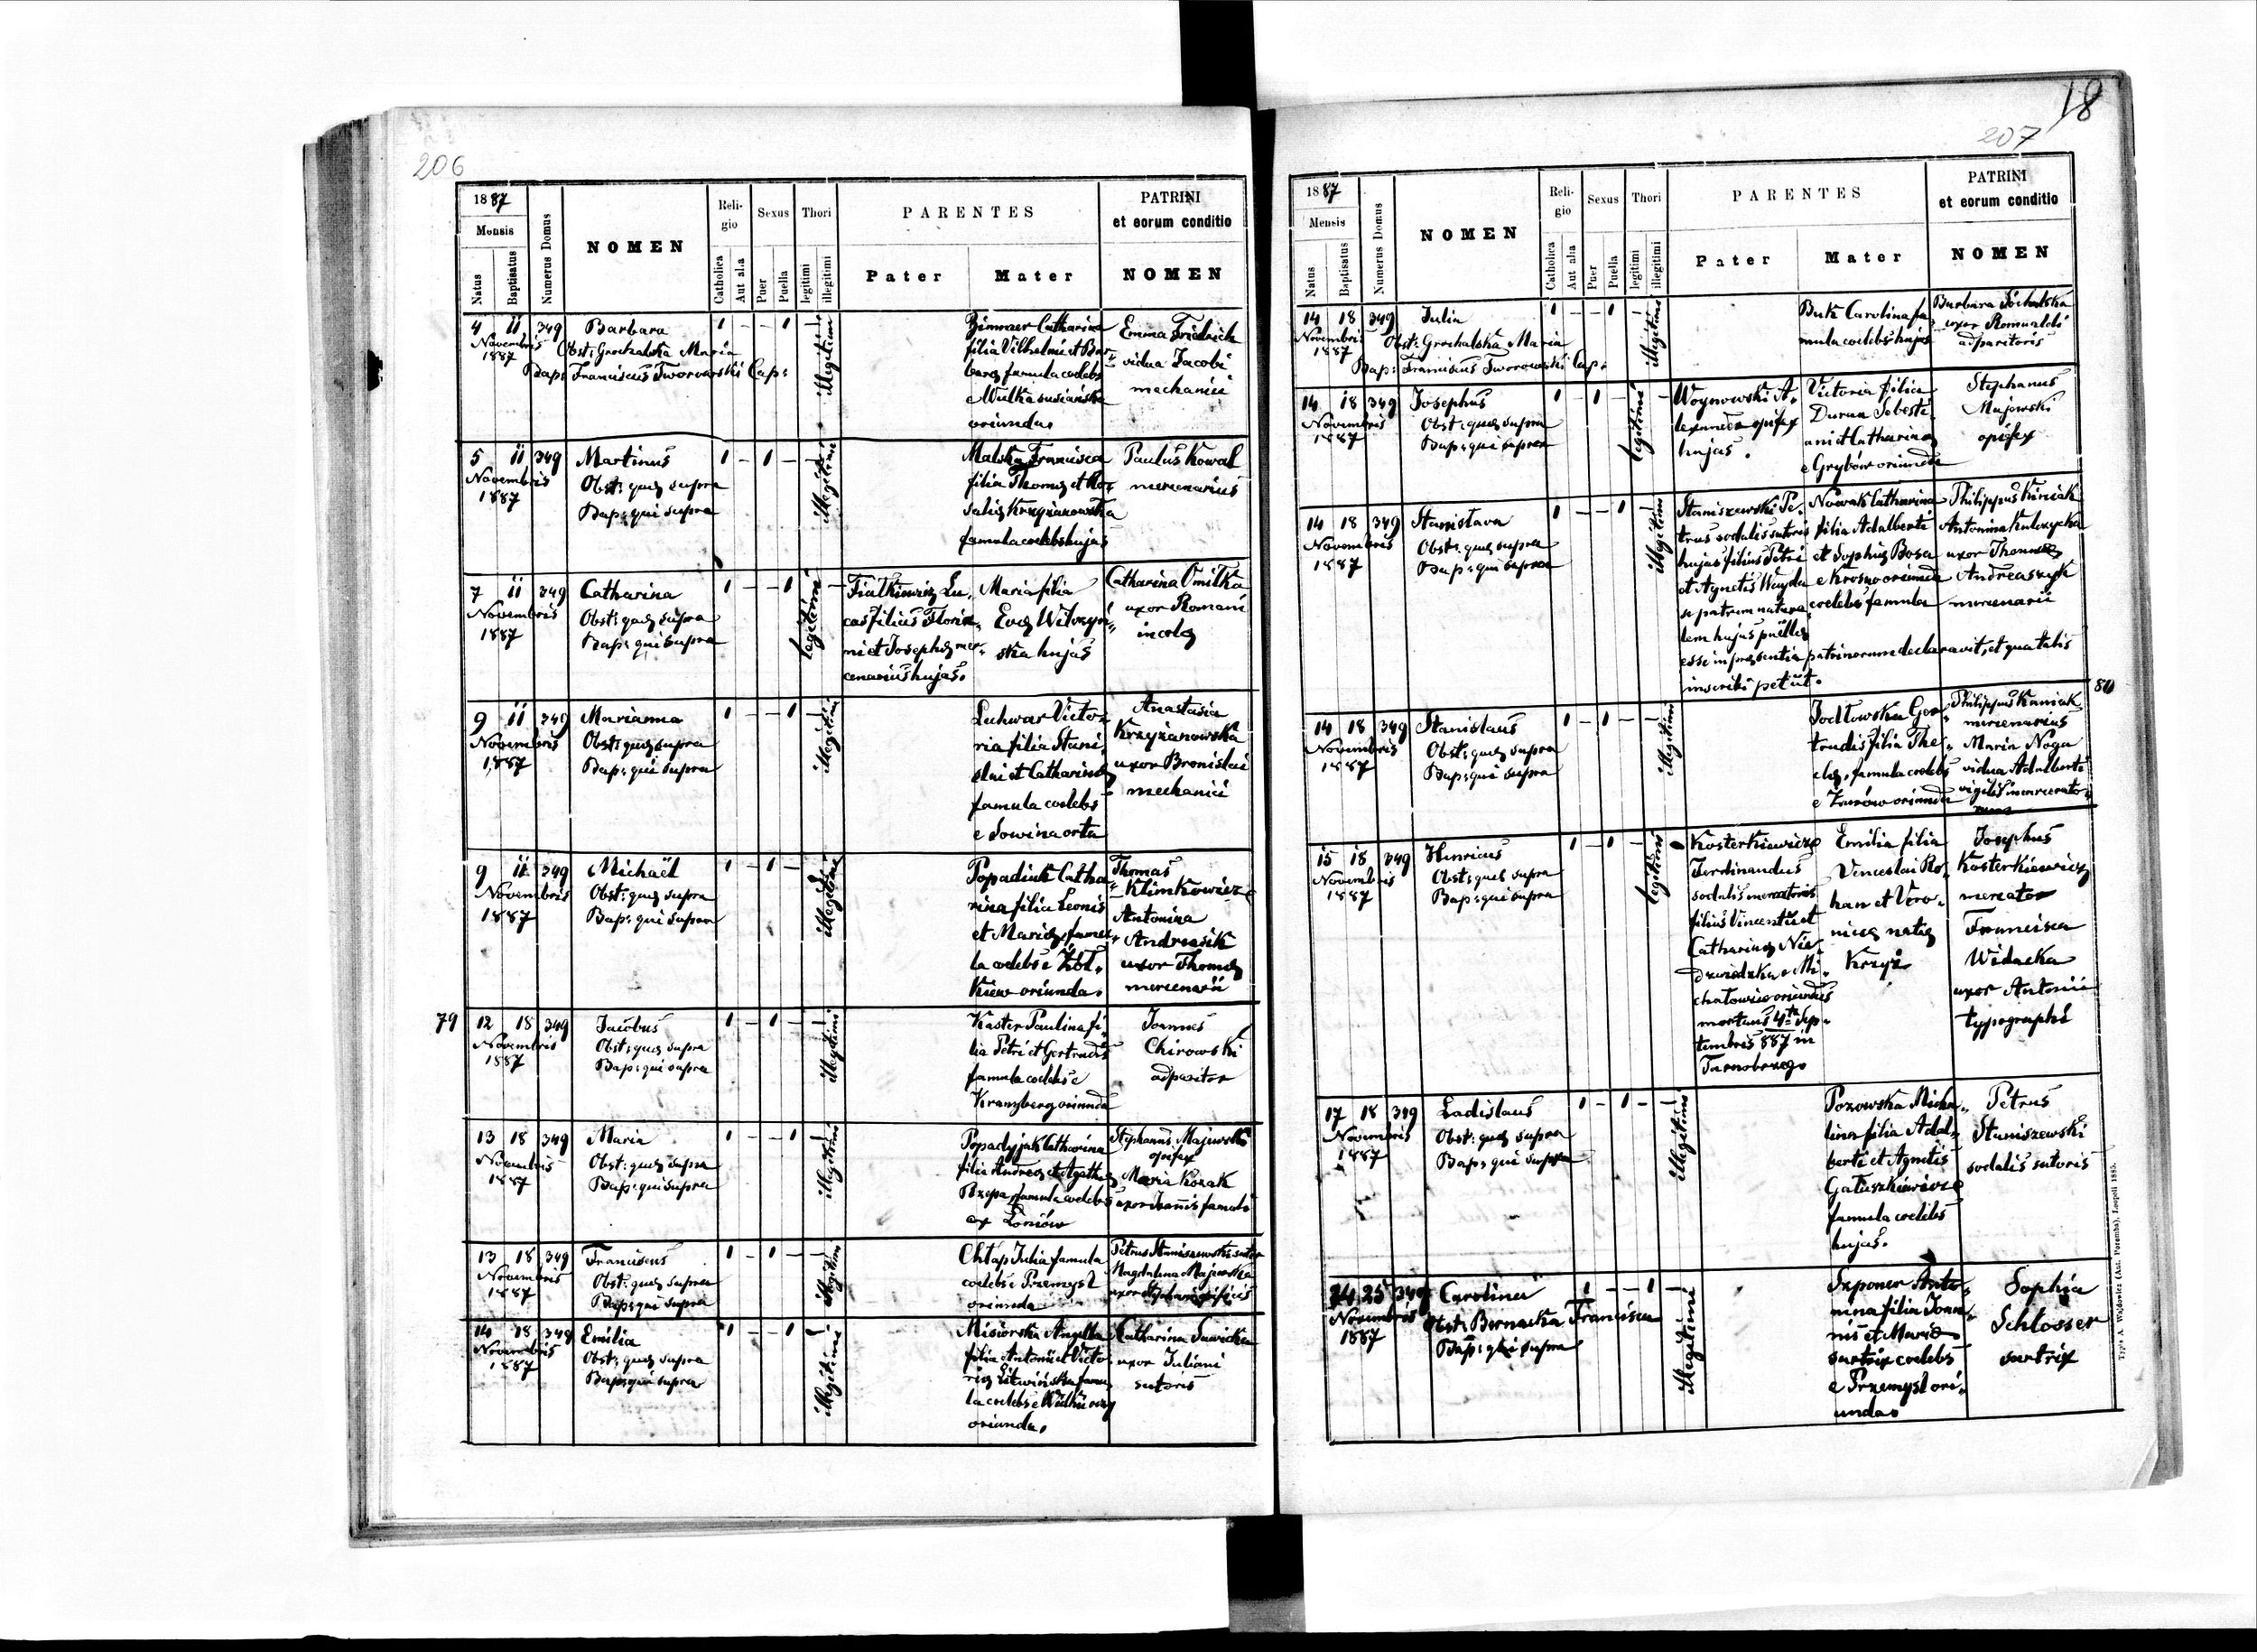 206
1887
Mensis
Natus
Baptisatus
Numerus Domus
NOMEN
Religio
Catholica
Aut alia
Sexus
Puer
Puella
Thori
legitimi
illegitimi
PARENTES
Pater
Mater
PATRINI
et eorum conditio
NOMEN
4 11 349 Barbara 1 - - 1 - illegitimi
Novembris
1887
Obst: Grochalska Maria
Bap: Franciscus Tworowski Cap:
Zimmer Catharina
filia Vilhelmi et Bar-
barae famula coelebs
e Wulka
oriunda.
Emma Fridrich
vidua Jacobi
mechanici
5 11 349 Martinus 1 - 1 - - illegitimi
Novembris
1887
Obst: quae supra
Bap: qui supra
Malska Francisca
filia Thomae et Ro-
saliae Krzyżanowska
famula coelebs hujas
Paulus Kowal
mercenarius
7 11 349 Catharina 1 - - 1 legitimi -
Novembris
1887
Obst: quae supra
Bap: qui supra
Fiałkiewicz Lu-
cas filius Floria-
ni et Josephae mer-
cenarius hujas.
Maria filia
Evae Wilczyń-
ska hujas
Catharina Omilka
uxor Romani
incolae
9 11 349 Marianna 1 - - 1 - illegitimi
Novembris
1887
Obst: quae supra
Bap: qui supra
Luhwar Victo-
ria filia Stani-
slai et Catharinae
famula coelebs
e Sowina orta
Anastasia
Krzyżanowska
uxor Bronislai
mechanici
9 11 349 Michaël 1 - 1 - - illegitimi
Novembris
1887
Obst: quae supra
Bap: qui supra
Popadiuk Catha-
rina filia Leonis
et Mariae, famu-
la coelebs e Żół-
kiew oriunda.
Thomas
Klimkowicz
Antonina
Andrasik
uxor Thomae
mercenarii
79 12 18 349 Jacobus 1 - 1 - - illegitimi
Novembris
1887
Obst: quae supra
Bap: qui supra
Kaster Paulina fi-
lia Petri et Gertrudis
famula coelebs e
Kranzberg oriunda
Joannes
Chirowski
adparitor
13 18 349 Maria 1 - - 1 - illegitimi
Novembris
1887
Obst: quae supra
Bap: qui supra
Popadyjak Catharina
filia Andreae et Agathae
Rzepa, famula coelebs
ex Łoniów
Stephanus Majewski
opifex
Maria Kozak
uxor Joannis famuli
13 18 349 Franciscus 1 - 1 - - illegitimi
Novembris
1887
Obst: quae supra
Bap: qui supra
Chłap Julia famula
coelebs e Przemyśl
oriunda
Petrus Staniszewski sutor
Magdalena Majewska
uxor Stephani opificis
14 18 349 Emilia 1 - - 1 - illegitimi
Novembris
1887
Obst: quae supra
Bap: qui supra
Misiorska Angella
filia Antonii et Victo-
riae Litwińska famu-
la coelebs e
oriunda.
Catharina Sawicka
uxor Juliani
sutoris
18
207
1887
Mensis
Natus
Baptisatus
Numerus Domus
NOMEN
Religio
Catholica
Aut alia
Sexus
Puer
Puella
Thori
legitimi
illegitimi
PARENTES
Pater
Mater
PATRINI
et eorum conditio
NOMEN
14 18 349 Julia 1 - - 1 - illegitimi
Novembris
1887
Obst: Grochalska Maria
Bap: Franciscus Tworowski Cap.
Buk Carolina fa-
mula coelebs hujas
Barbara
uxor Romualdi
adparitoris
14 18 349 Josephus 1 - 1 - legitimi -
Novembris
1887
Obst: quae supra
Bap: qui supra
Woynowski A-
lexander opifex
hujas.
Victoria filia
Duran Sebasti-
ani et Catharinae
e Grybów oriunda
Stephanus
Majewski
opifex
14 18 349 Stanislava 1 - - 1 - illegitimi
Novembris
1887
Obst: quae supra
Bap: qui supra
Staniszewski Pe-
trus sodalis sutoris
hujas filius Petri
et Agnetis Wayda
se patrem natura-
lem hujus puellae
esse in praesentia patrinorum declaravit, et qua talis
inscribi petiit.
Nowak Catharina
filia Adalberti
et Sophiae Bosa
e Krosno oriunda
coelebs famula
Philippus Kiniak
Antonina Kulczycka
uxor Thomae
Andreaszyk
mercenarii
80
14 18 349 Stanislaus 1 - 1 - - illegitimi
Novembris
1887
Obst: quae supra
Bap: qui supra
Jodłowska Ger-
trudis filia The-
clae, famula coelebs
e Żurów oriunda
Philippus Kaniak
mercenarius
Maria Noga
vidua Adalberti
vigilis incarcerato-
rum
15 18 349 Henricus 1 - 1 - legitimi
Novembris
1887
Obst: quae supra
Bap: qui supra
Kosterkiewicz
Ferdinandus
sodalis mercatoris
filius Vincentii et
Catharinae Nie-
dzwiedzka e Mi-
chałowice oriundus
mortuus 4ta Sep-
tembris 887 in
Tarnobrzeg
Emilia filia
Venceslai Ro-
han et Vero-
nicae natae
Krzyż
Josephus
Kosterkiewicz
mercator
Francisca
Widacka
uxor Antonii
typographi
17 18 349 Ladislaus 1 - 1 - - illegitimi
Novembris
1887
Obst: quae supra
Bap: qui supra
Pozowska Micha-
lina filia Adal-
berti et Agnetis
Gałuszkiewicz
famula coelebs
hujas.
Petrus
Staniszewski
sodalis sutoris
24 25 349 Carolina 1 - - 1 - illegitimi
Novembris
1887
Obst: Bernacka Francisca
Bap: qui supra
Szponer Anto-
nina filia Joan-
nis et Mariae
sartrix coelebs
e Przemyśl ori-
unda
Sophia
Schlosser
sartrix
Typis A. Wajdowicz (Ant. Poremba), Leopoli 1885.